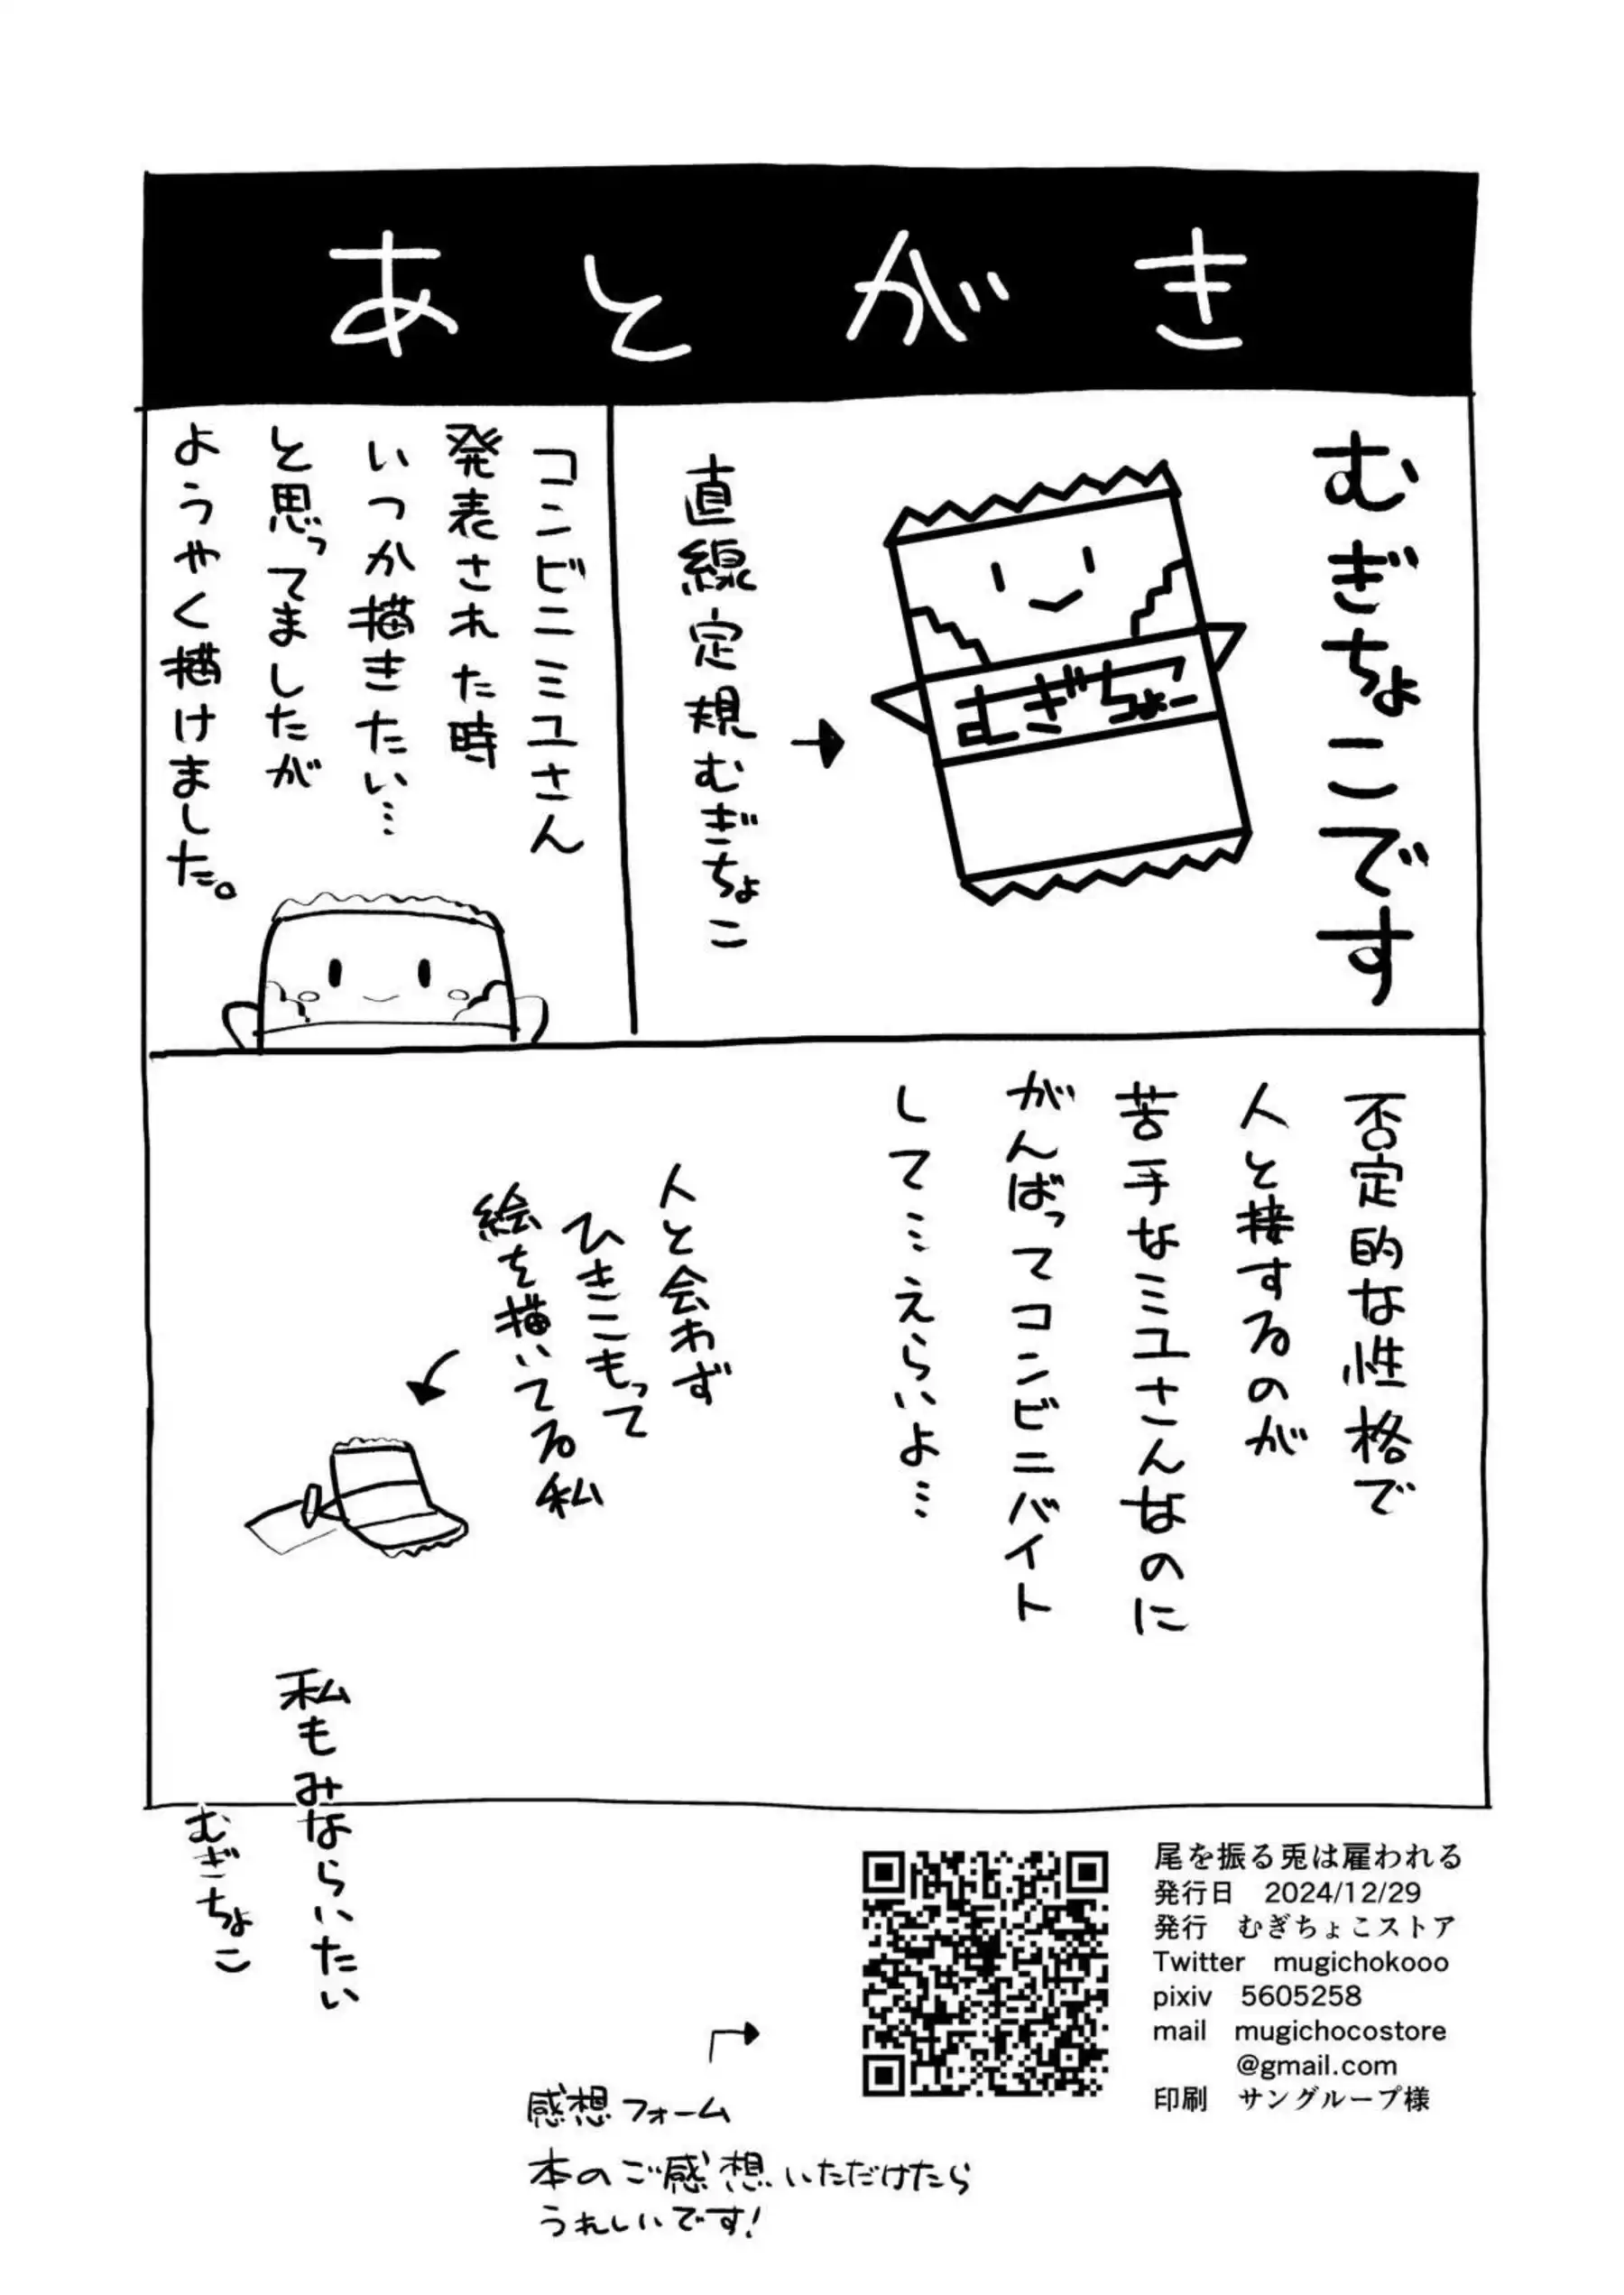 あとがき
むぎちょこです
むぎちょこ
直線定規むぎちょこ
コンビニミユさん
発表された時
いつか描きたい…
と思ってましたが
ようやく描けました。
否定的な性格で
人と接するのが
苦手なミユさんなのに
がんばってコンビニバイト
して…えらいよ…
人と会わず
ひきこもって
絵を描いてる私
私もみならいたい
むぎちょこ
感想フォーム
本のご感想いただけたら
うれしいです!
尾を振る兎は雇われる
発行日 2024/12/29
発行 むぎちょこストア
Twitter mugichokooo
pixiv 5605258
mail mugichocostore
@gmail.com
印刷 サングループ様